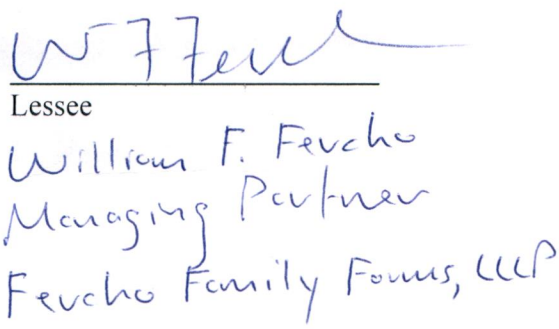 W F Feucho
Lessee
William F. Feucho
Managing Partner
Feucho Family Farms, LLLP